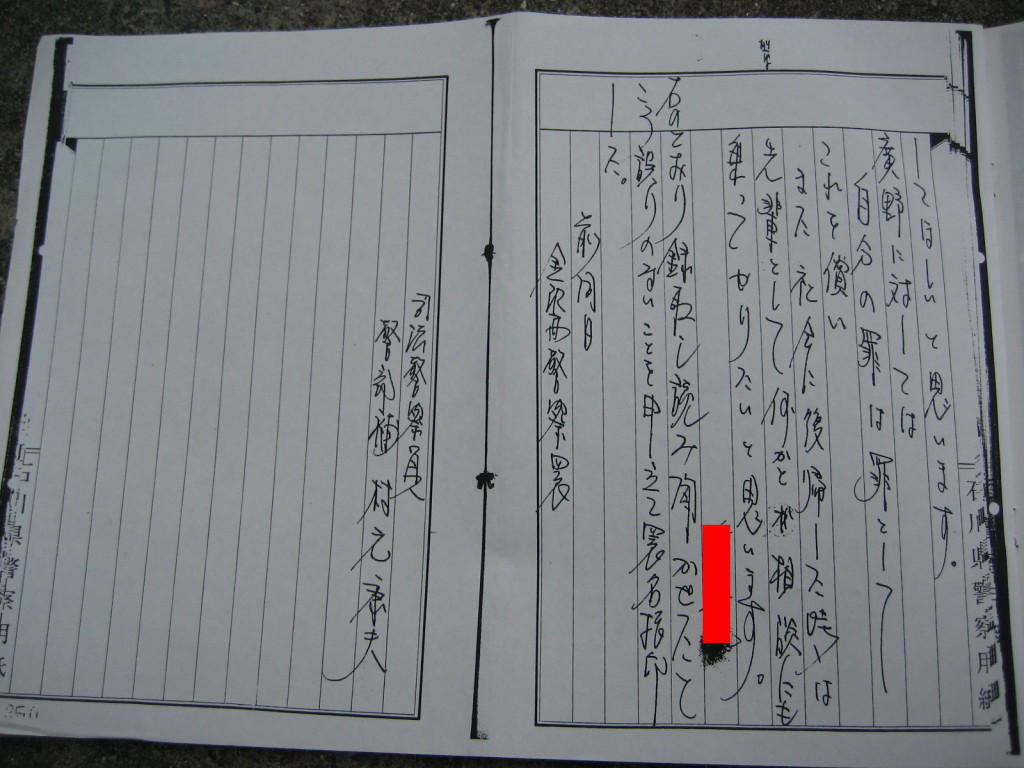 してほしいと思います。
廣野に対しては
自分の罪は罪として
これを償い
また社会に復帰した時には
先輩として何かと相談にも
乗ってやりたいと思います。
右のとおり録取し読み聞かせたと
ころ誤りのないことを申し立て署名指印
した。
前同日
金沢西警察署
司法警察員
警部補 村元康夫
石川県警察用紙
石川県警察用紙